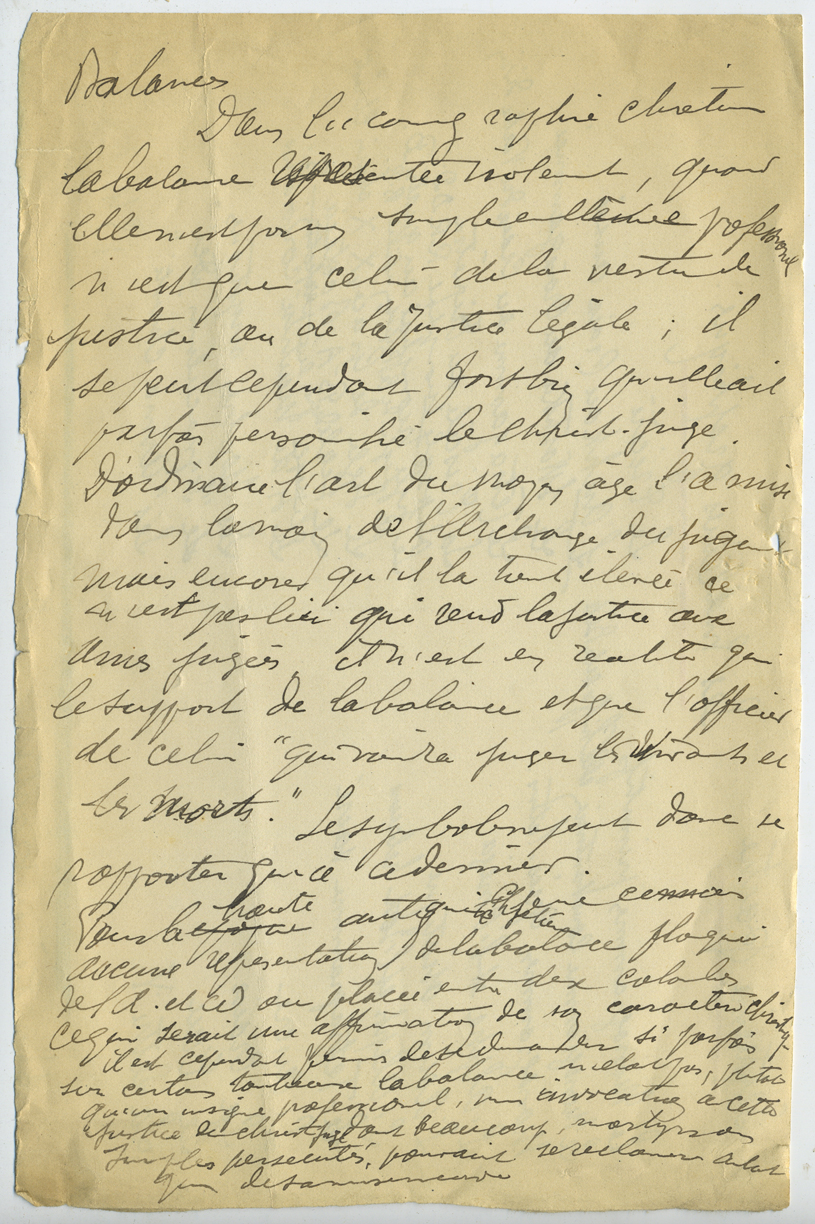 Balances
Dans l'iconographie chrétienne
la balance représentée isolement, quand
elle n'est pas un simple professionnel
n'est que celui de la vertu de
justice, ou de la Justice légale ; il
se peut cependant fort bien qu'elle ait
parfois personnifié le Christ-Juge.
D'ordinaire l'art du moyen âge l'a mise
dans la main de l'Archange du jugement
mais encore qu'il la tient élevée ce
n'est pas lui qui rend la justice aux
âmes jugées, il n'est en realité que
le support de la balance et que l'officier
de celui "qui viendra juger les Vivants et
les morts." Le symbole ne peut donc se
rapporter qu'à ce dernier.
Pour la haute antiquité chrétienne je ne connais
aucune représentation de la balance
de l'α et ω ou placée entre deux colombes
ce qui serait une affirmation de son caractère
il est cependant permis de se demander si parfois
sur certains tombeaux la balance n'est pas, plutôt
qu'un insigne professionnel, une invocation à cette
justice du christ juge dont beaucoup, martyrs ou
simples persecutés, pouvaient se réclamer
que de sa misericorde